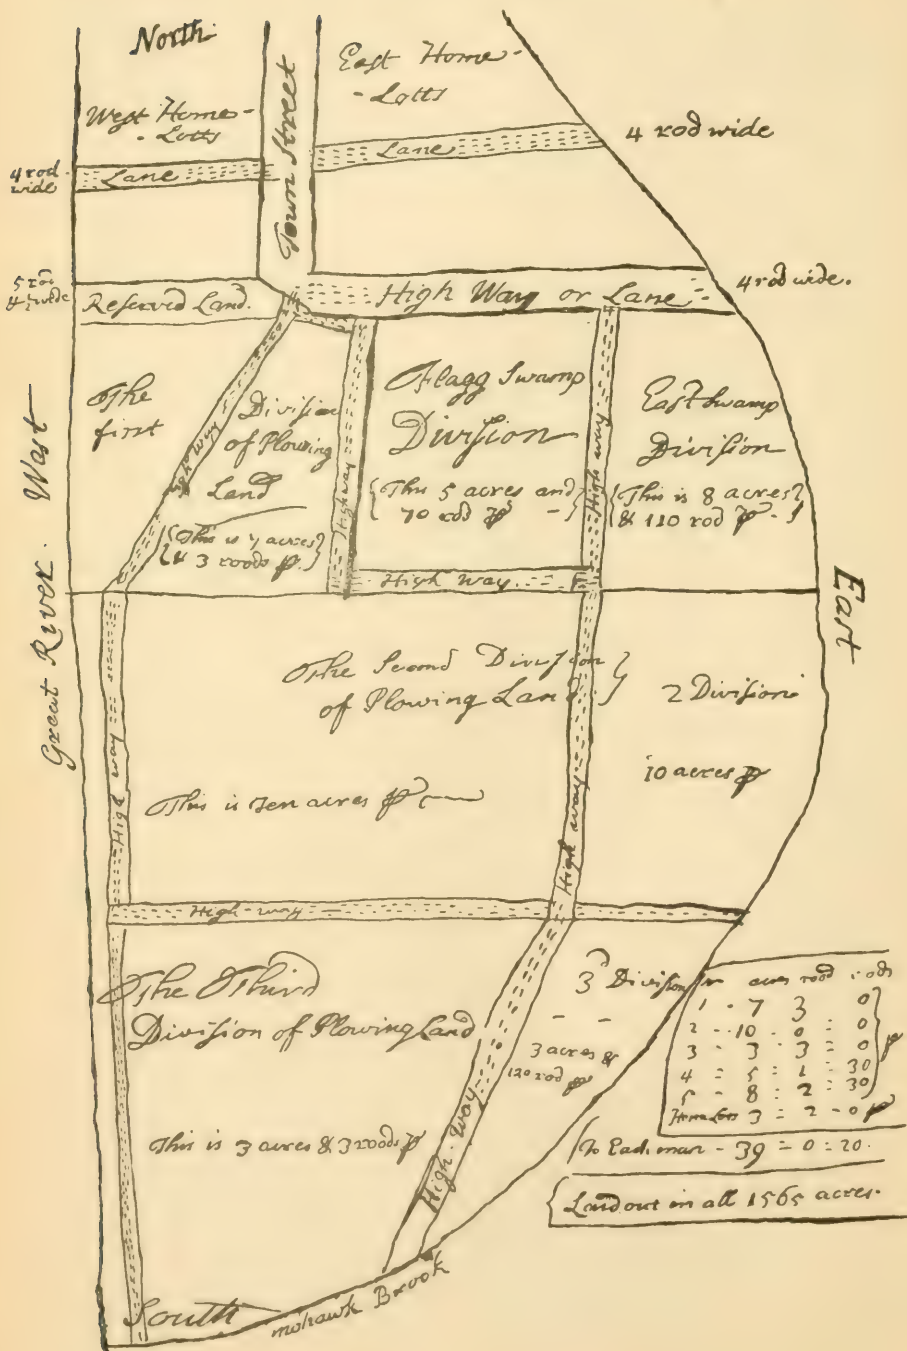 North
East Home-
-Lotts
West Home-
-Lotts
Town Street
4 rod
wide
Lane
Lane
4 rod wide
5 rod
Reserved Land.
High Way or Lane
4 rod wide.
The
first
High Way
Division
of Plowing
Land
{This is 7 acres}
{& 3 roods ꝑ.}
Highway
Flagg Swamp
Division
{This 5 acres and}
{70 rod ꝑ -}
High way
East Swamp
Division
{This is 8 acres}
{& 110 rod ꝑ -}
High Way
Great River West
East
The Second Division
of Plowing Land
2 Division
10 acres ꝑ
This is Ten acres ꝑ
High way
High way
High-way
The Third
Division of Plowing Land
This is 3 acres & 3 roods ꝑ
High-way
3 Division
3 acres &
120 rod ꝑ
acres rood rods
1 - 7 3 0
2 - 10 - 0 - 0
3 - 3 - 3 = 0
4 = 5 = 1 = 30
5 - 8 = 2 = 30
Home Lotts 3 = 2 - 0 ꝑ
To Each man - 39 = 0 = 20.
Laid out in all 1565 acres.
South
mohawk Brook